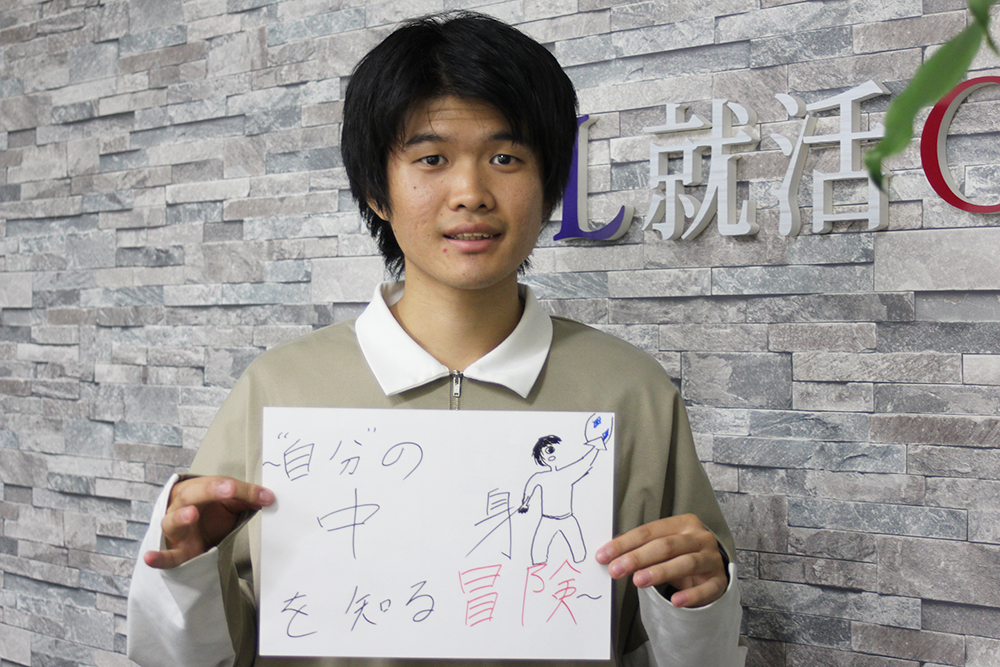 L就活C
～“自分”の
中身
を知る冒険～